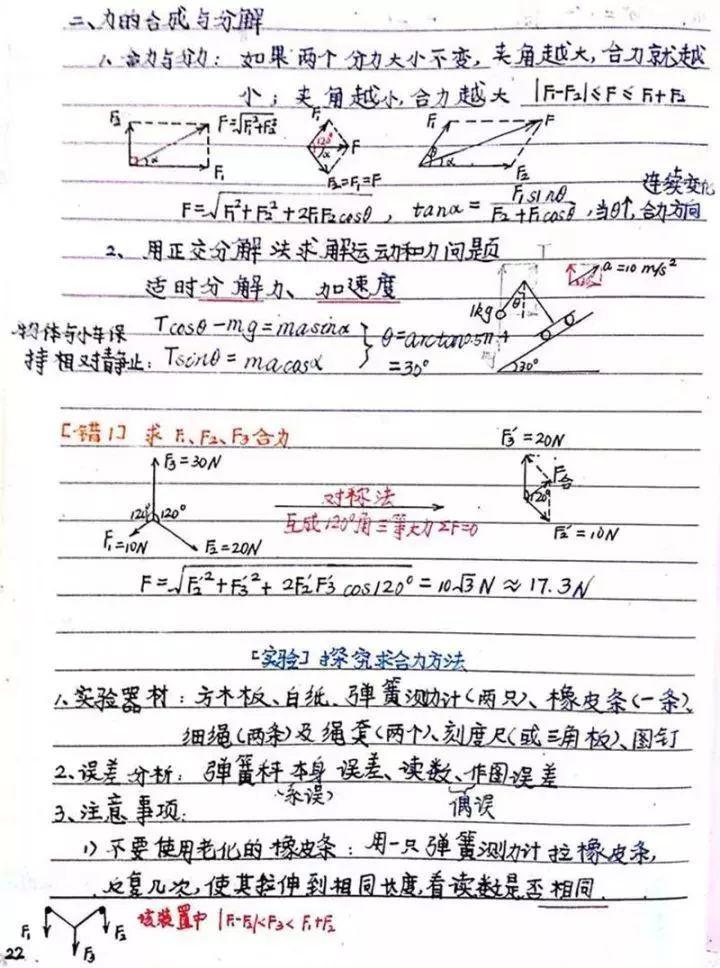 二、力的合成与分解
1、合力与分力：如果两个分力大小不变，夹角越大，合力就越
小；夹角越小，合力越大 |F₁-F₂|≤F≤F₁+F₂
F₂ F=√F₁²+F₂² F₁ α
F₁ 120° α F F₂=F₁=F
F₁ F θ α F₂
连续变化
F=√F₁²+F₂²+2F₁F₂cosθ，tanα=F₁sinθ/F₂+F₁cosθ，当θ↑，合力方向
2、用正交分解法求解运动和力问题
适时分解力、加速度
T a=10 m/s²
1kg θ 30°
物体与小车保
持相对静止：
Tcosθ-mg=masinα
Tsinθ=macosα
} θ=arctan
=30°
[错1] 求F₁、F₂、F₃合力
F₃=30N 120° 120° F₁=10N F₂=20N
对称法
互成120°角三等大力ΣF=0
F₃'=20N F合 120° F₂'=10N
F=√F₂'²+F₃'²+2F₂'F₃'cos120°=10√3N≈17.3N
[实验] 探究求合力方法
1、实验器材：方木板、白纸、弹簧测力计(两只)、橡皮条(一条)、
细绳(两条)及绳套(两个)、刻度尺(或三角板)、图钉
2、误差分析：弹簧秤本身误差、读数、作图误差
(系误) 偶误
3、注意事项：
1) 不要使用老化的橡皮条：用一只弹簧测力计拉橡皮条，
反复几次，使其拉伸到相同长度，看读数是否相同．
F₁ F₃ F₂ 该装置中 |F₁-F₂|<F₃<F₁+F₂
22